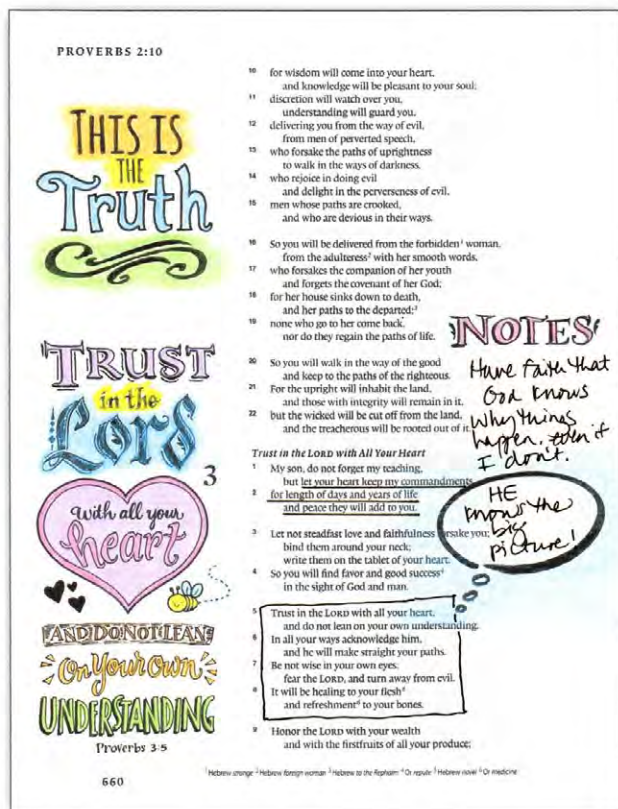 PROVERBS 2:10
THIS IS
THE
Truth
TRUST
in the
Lord
with all your
heart
AND DO NOT LEAN
On Your Own
UNDERSTANDING
Proverbs 3:5
660
10 for wisdom will come into your heart,
and knowledge will be pleasant to your soul;
11 discretion will watch over you,
understanding will guard you,
12 delivering you from the way of evil,
from men of perverted speech,
13 who forsake the paths of uprightness
to walk in the ways of darkness,
14 who rejoice in doing evil
and delight in the perverseness of evil,
15 men whose paths are crooked,
and who are devious in their ways.
16 So you will be delivered from the forbidden¹ woman,
from the adulteress² with her smooth words,
17 who forsakes the companion of her youth
and forgets the covenant of her God;
18 for her house sinks down to death,
and her paths to the departed;³
19 none who go to her come back,
nor do they regain the paths of life.
20 So you will walk in the way of the good
and keep to the paths of the righteous.
21 For the upright will inhabit the land,
and those with integrity will remain in it,
22 but the wicked will be cut off from the land,
and the treacherous will be rooted out of it.
3
Trust in the LORD with All Your Heart
1 My son, do not forget my teaching,
but let your heart keep my commandments,
2 for length of days and years of life
and peace they will add to you.
3 Let not steadfast love and faithfulness forsake you;
bind them around your neck;
write them on the tablet of your heart.
4 So you will find favor and good success⁴
in the sight of God and man.
5 Trust in the LORD with all your heart,
and do not lean on your own understanding.
6 In all your ways acknowledge him,
and he will make straight your paths.
7 Be not wise in your own eyes;
fear the LORD, and turn away from evil.
8 It will be healing to your flesh⁵
and refreshment⁶ to your bones.
9 Honor the LORD with your wealth
and with the firstfruits of all your produce;
¹ Hebrew strange ² Hebrew foreign woman ³ Hebrew to the Rephaim ⁴ Or repute ⁵ Hebrew navel ⁶ Or medicine
NOTES
Have faith that
God knows
why things
happen, even if
I don't.
HE
knows the
big
picture!